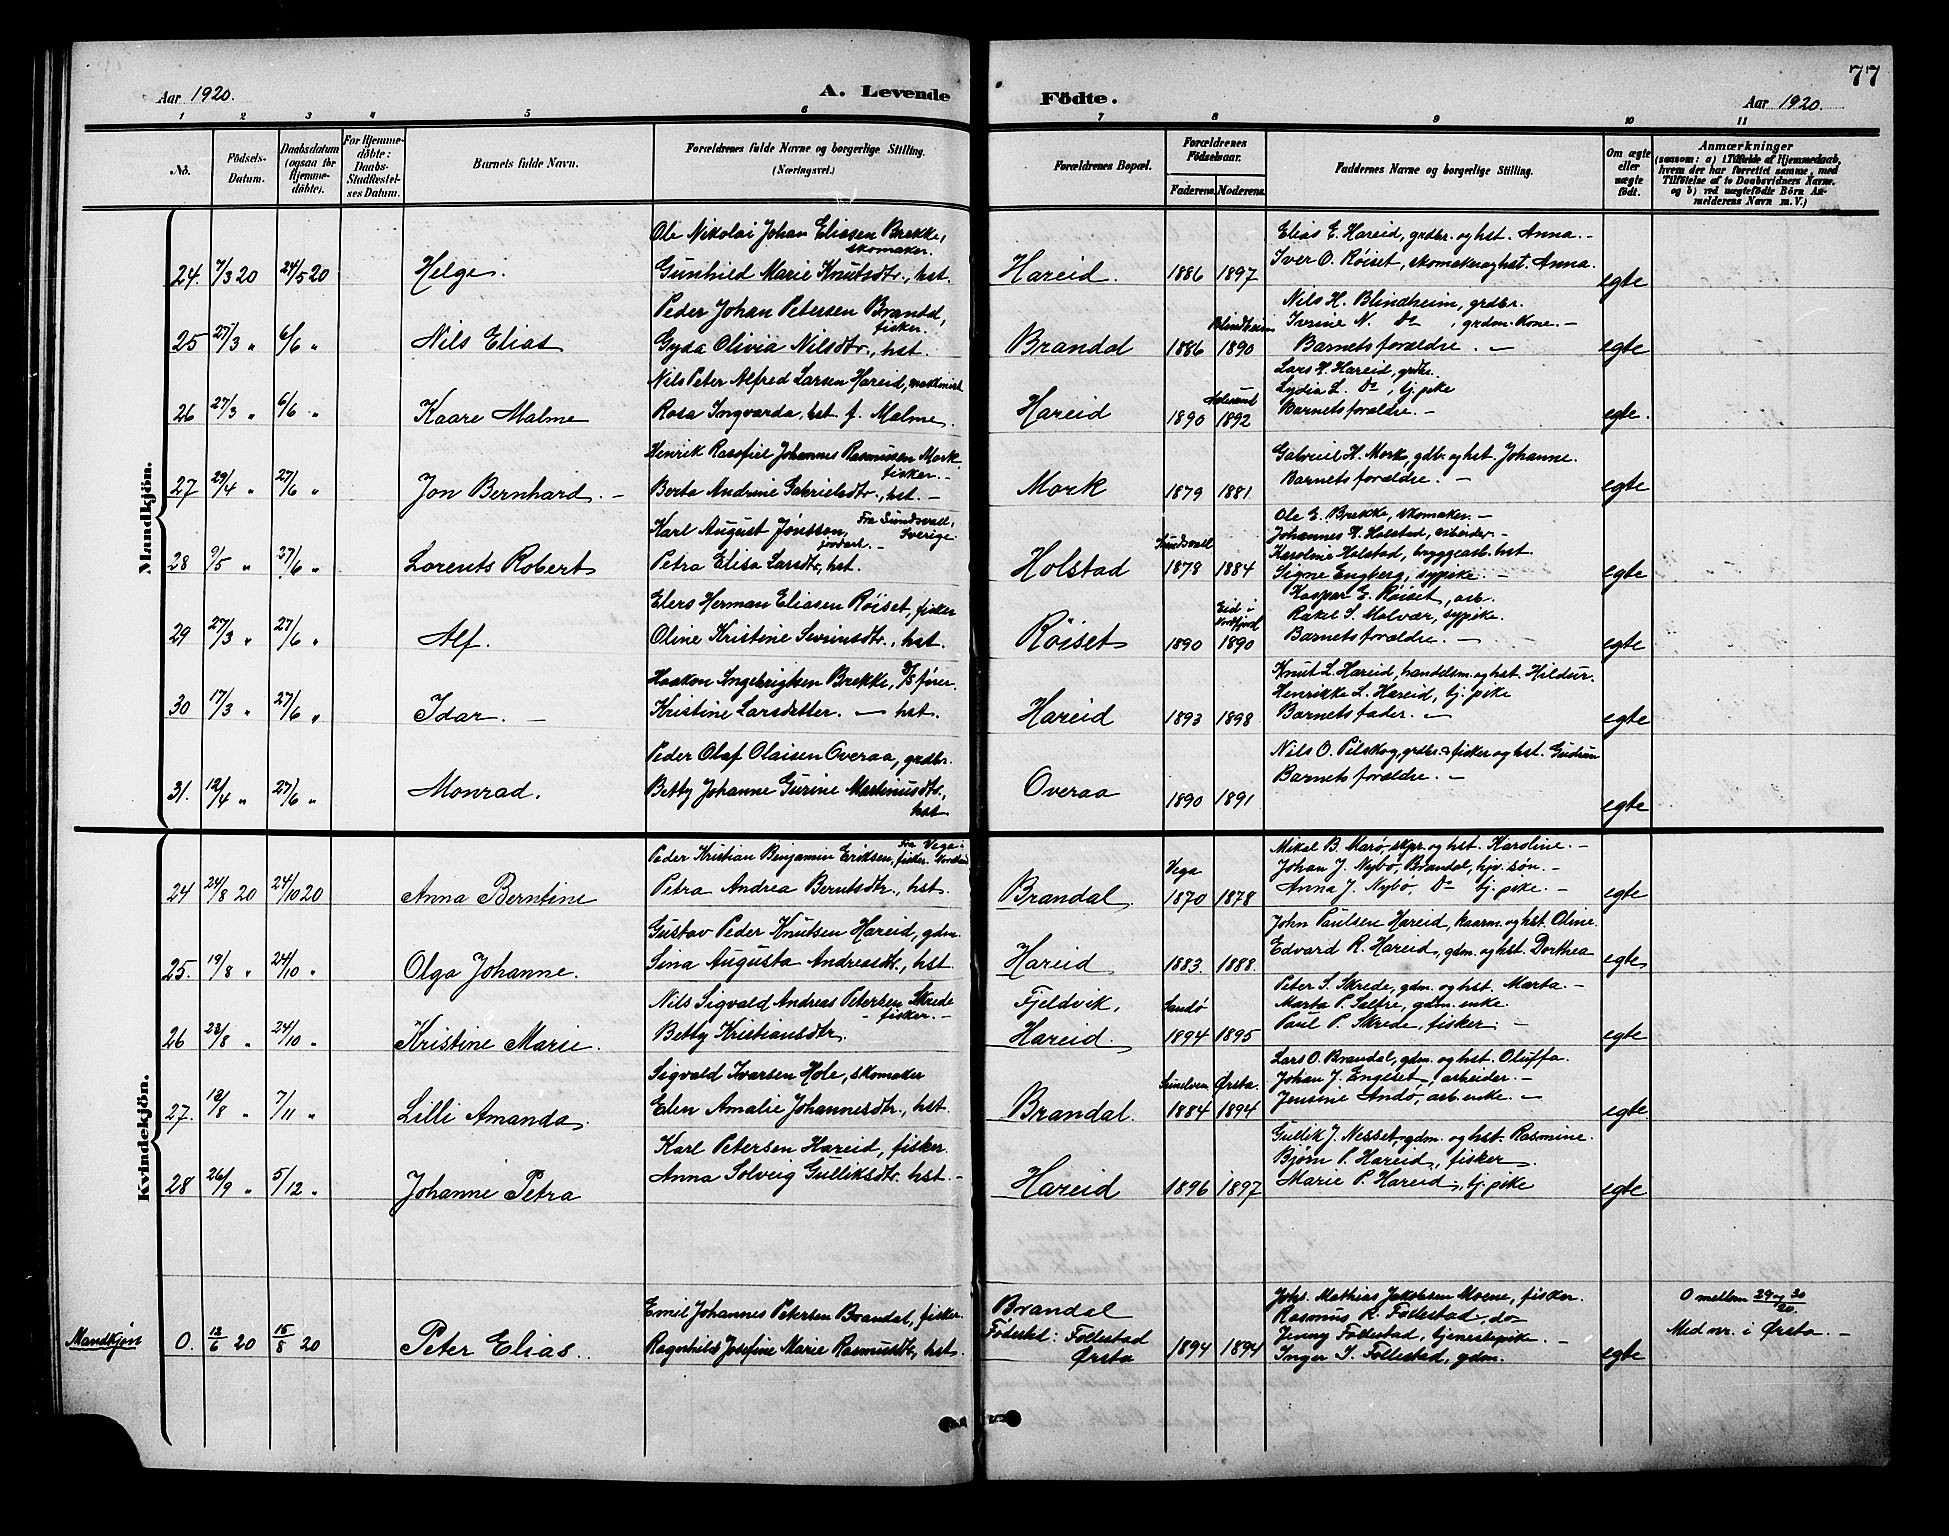 77
Aar 1920.
A. Levende
Födte.
Aar 1920.
1 2 3 4 5 6 7 8 9 10 11
No.
Födsels-
Datum.
Daabsdatum
(ogsaa for
Hjemme-
døbte).
For Hjemme-
døbte:
Daabs-
Stadfæstel-
ses Datum.
Barnets fulde Navn.
Forældrenes fulde Navne og borgerlige Stilling.
(Næringsvei.)
Forældrenes Bopæl.
Forældrenes
Födselsaar.
Faderens. Moderens.
Faddernes Navne og borgerlige Stilling.
Om ægte
eller
uægte
født.
Anmærkninger
(saasom: a) i Tilfælde af Hjemmedaab,
hvem der har forrettet samme, med
Tilföielse af to Daabsvidners Navne,
og b) ved uægtefödte Börn An-
melderens Navn m. V.)
Mandkjön.
Ole Nikolai Johan Eliasen Brekke,
skomaker.
Elias E. Hareid, grdbr. og hst. Anna. -
24. 7/3 20 24/5 20 Helge. Gunhild Marie Knutsdtr., hst. Hareid. 1886 1897 Iver O. Röiset, skomaker og hst. Anna. egte
Peder Johan Petersen Brandal,
fisker.
Nils H. Blindheim, grdbr.
Blindheim Ivrine N. Do, grdm. kone. -
25 27/3 " 6/6 " Nils Elias Gyda Olivia Nilsdtr., hst. Brandal 1886 1890 Barnets forældre. - egte
Nils Peter Alfred Larsen Hareid, maskinist
Lars H. Hareid, grdbr.
Lydia L. Do, tj. pike
26 27/3 " 6/6 " Kaare Malme Rosa Ingvarda, hst. f. Malme. Hareid 1890 Aalesund 1892 Barnets forældre. - egte.
Henrik Rasofiel Johannes Rasmussen Mork,
fisker. -
Gabriel H. Mork, gdbr. og hst. Johanne.
27 29/4 " 27/6 " Jon Bernhard. - Berta Andrine Gabrielsdtr., hst. - Mork 1879 1881 Barnets forældre. - egte
Karl August Jönsson, Fra Sundsvall,
jordarb. - Sverige
Ole E. Brekke, skomaker. -
Johannes K. Holstad, arbeider -
Sundsvall Karoline Holstad, bryggearb. hst.
28 9/5 " 27/6 " Lorents Robert Petra Elisa Larsdtr., hst. Holstad 1878 1884 Signe Engberg, sypike. - egte
Elers Herman Eliasen Röiset, fisker
Kaspar E. Röiset, arb.
Eid i Nordfjord Rakel S. Malvær, sypike.
29 27/3 " 27/6 " Alf. Oline Kristine Sevrinsdtr., hst. Röiset 1890 1890 Barnets forældre. - egte
Haakon Ingebrigtsen Brekke, D/S fører.
Knut L. Hareid, handelsm. og hst. Hildur.
Henrikke L. Hareid, tj. pike
30 17/3 " 27/6 " Idar. - Kristine Larsdatter. - hst. Hareid 1893 1898 Barnets fader. - egte
Peder Olaf Olaisen Overaa, grdbr.
Nils O. Pilskog, grdbr. & fisker og hst. Gudrun
31. 12/4 " 27/6 " Monrad. Betty Johanne Gurine Martinusdtr.,
hst Overaa 1890 1891 Barnets forældre. - egte
Kvindekjön.
Peder Kristian Benjamin Eriksen, fisker. Fra Vega i Nordland
Mikal B. Marö, skpr. og hst. Karoline. -
Vega Johan J. Nybö, Brandal, hjv. søn. -
24 24/8 20 24/10 20 Anna Berntine Petra Andrea Berntsdtr., hst. Brandal. 1870 1878 Anna J. Nybö, Do tj. pike. - egte
Gustav Peder Knutsen Hareid, gdm.
John Paulsen Hareid, kaarm. og hst. Oline.
25. 19/8 " 24/10 " Olga Johanne. Sina Augusta Andreasdtr., hst. Hareid 1883 1888. Edvard R. Hareid, gdm. og hst. Dorthea egte
Nils Sigvald Andreas Petersen Skrede
- fisker. -
Fjeldvik, Sandö
Peter S. Skrede, gdm. og hst. Marta. -
Marta P. Sætre, gdm. enke.
26 23/8 " 24/10 " Kristine Marie. Betty Kristiansdtr. Hareid. 1894 1895 Paul P. Skrede, fisker. - egte
Sigvald Ivarsen Hole, skomaker
Lars O. Brandal, gdm. og hst. Oluffa.
Sunelven Ørsta. Johan J. Engeset, arbeider. -
27. 18/8 " 7/11 " Lilli Amanda. Elen Amalie Johannesdtr., hst. Brandal. 1884 1894 Jensine Andö, arb. enke. - egte
Karl Petersen Hareid, fisker.
Gullik J. Nesset, gdm. og hst. Rasmine.
Bjørn P. Hareid, fisker.
28 26/9 " 5/12 " Johanne Petra Anna Solveig Gulliksdtr. hst. - Hareid 1896 1897 Marie P. Hareid, tj. pike egte
Emil Johannes Petersen Brandal, fisker.
Brandal
Johs. Mathias Jakobsen Moene, fisker.
Rasmus R. Follestad, do
0 mellem 29 og 30/20.
Mandkjön 0. 12/6 20 15/8 20 Peter Elias. Ragnhild Josefine Marie Rasmusdtr., hst. Fødested: Follestad
Ørsta 1894 1894 Jenny Follestad, tjenestepike. -
Inger I. Follestad, gdm. egte
Med nr. i Ørsta. -